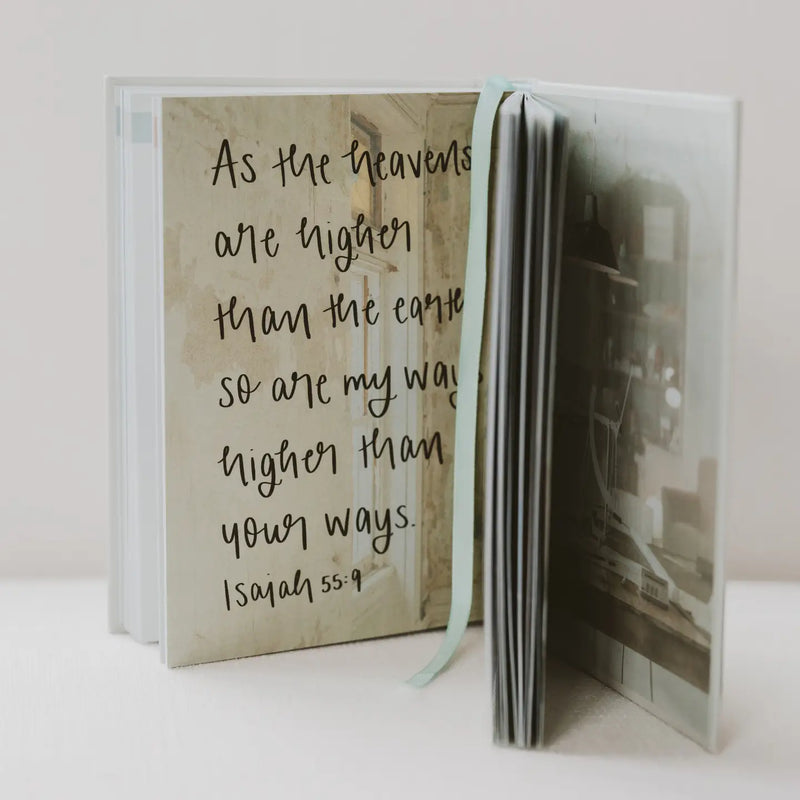 As the heavens
are higher
than the earth
so are my ways
higher than
your ways.
Isaiah 55:9